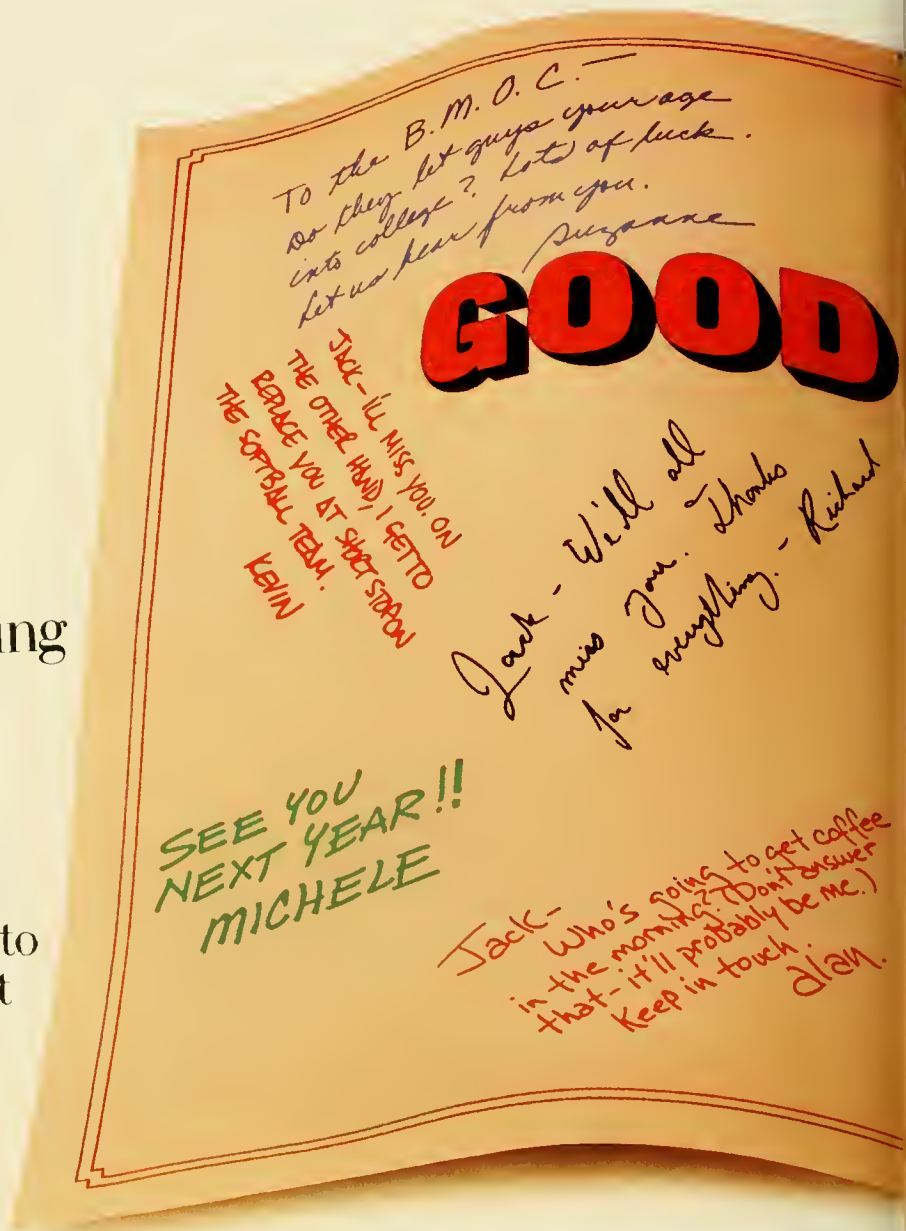 To the B.M.O.C.—
Do they let guys your age
into college? Lots of luck.
Let us hear from you.
Suzanne
GOOD
JACK- I'LL MISS YOU. ON
THE OTHER HAND, I GET TO
REPLACE YOU AT SHORTSTOP ON
THE SOFTBALL TEAM.
KEVIN
Jack - We'll all
miss you. Thanks
for everything. - Richard
ing
SEE YOU
NEXT YEAR!!
MICHELE
to
t
Jack-
Who's going to get coffee
in the morning? (Don't answer
that- it'll probably be me.)
Keep in touch.
Alan.